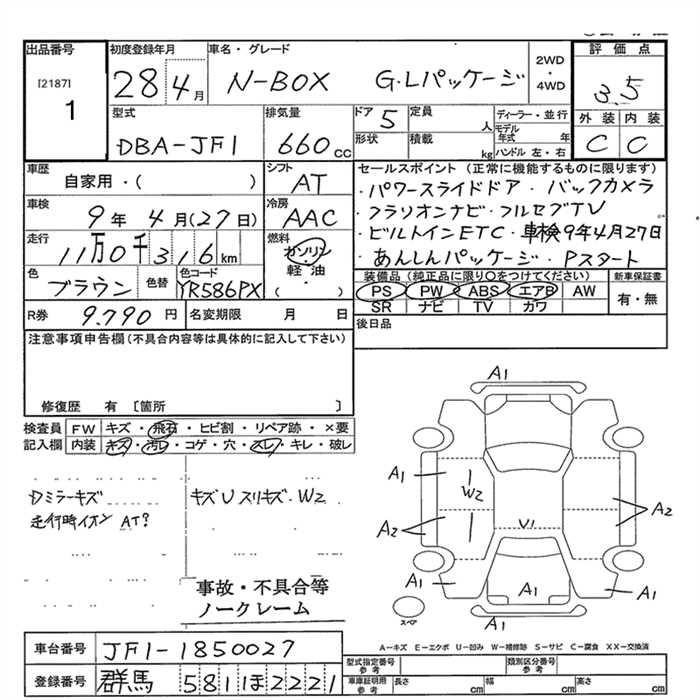 出品番号 初度登録年月 車名・グレード 2WD・4WD 評価点
[2187] 1 28 4月 N-BOX G・Lパッケージ 3.5
型式 排気量 ドア 定員 ディーラー・並行 外装 内装
DBA-JF1 660cc 5 人 モデル年式 年 C C
形状 積載 kg ハンドル 左・右
車歴 シフト セールスポイント (正常に機能するものに限ります)
自家用・( ) AT ・パワースライドドア・バックカメラ
車検 冷房 ・フラリオンナビ・フルセブTV
9年 4月(27日) AAC ・ビルトインETC・車検9年4月27日
走行 燃料 ・あんしんパッケージ・Pスタート
11万0千316km ガソリン・軽油・( )
色 色替 色コード 装備品(純正品に限り○をつけてください) 新車保証書
ブラウン YR586PX PS PW ABS エアB AW 有・無
SR ナビ TV カワ
R券 9.790円 名変期限 月 日 後日品
注意事項申告欄(不具合内容等は具体的に記入して下さい)
修復歴 有 〔箇所 〕
検査員記入欄 FW キズ・飛石・ヒビ割・リペア跡・×要
内装 キズ・汚レ・コゲ・穴・スレ・キレ・破レ
Dミラーキズ キズUスリキズ・W2
走行時イオン AT?
事故・不具合等
ノークレーム
A1
A1
W2
A2
A2
U1
A1 A1 A1
A1
スペア
A-キズ E-エクボ U-凹み W-補修跡 S-サビ C-腐食 XX-交換済
車台番号 JF1-1850027
型式指定番号 参考 類別区分番号 参考
登録番号 群馬 581ほ2221
車庫証明用 参考 長さ cm 幅 cm 高さ cm